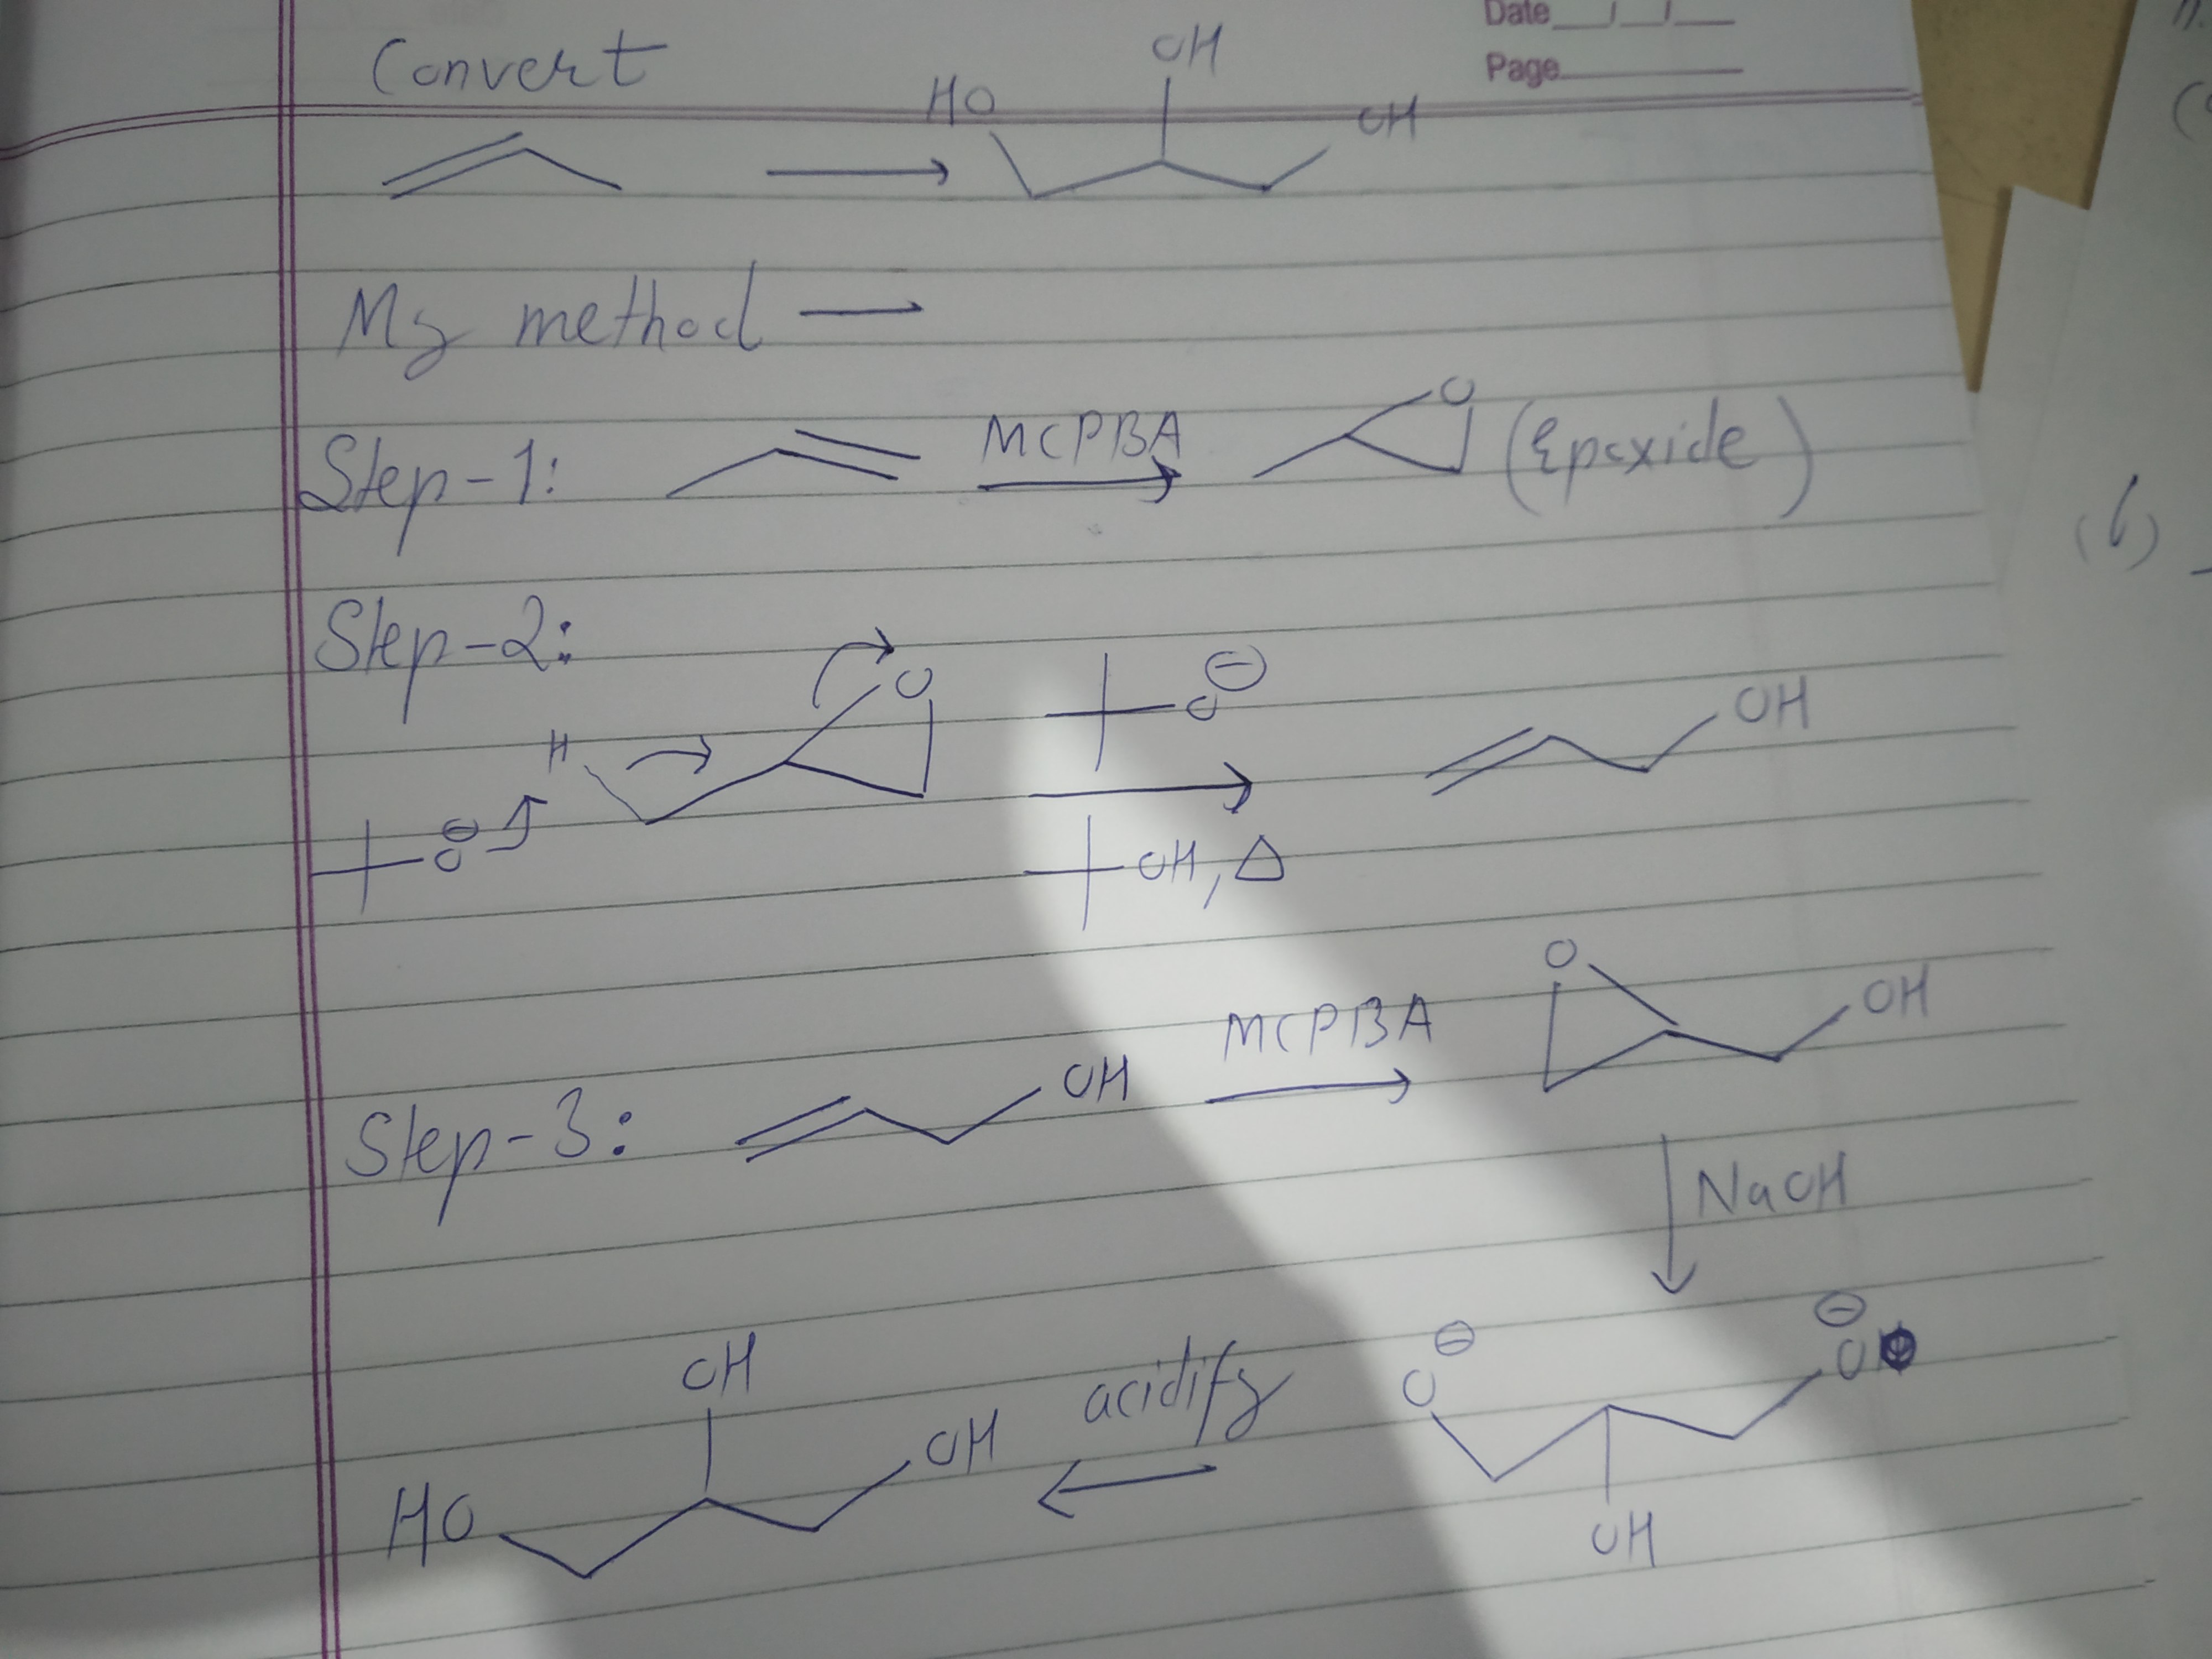 Date
Page
Convert
HO OH OH
My method
Step-1: MCPBA O (Epoxide)
Step-2:
H O O⊖ OH
O⊖ OH, Δ
Step-3: OH MCPBA O OH
NaOH
OH acidify O⊖ O⊖
HO OH OH
(b)